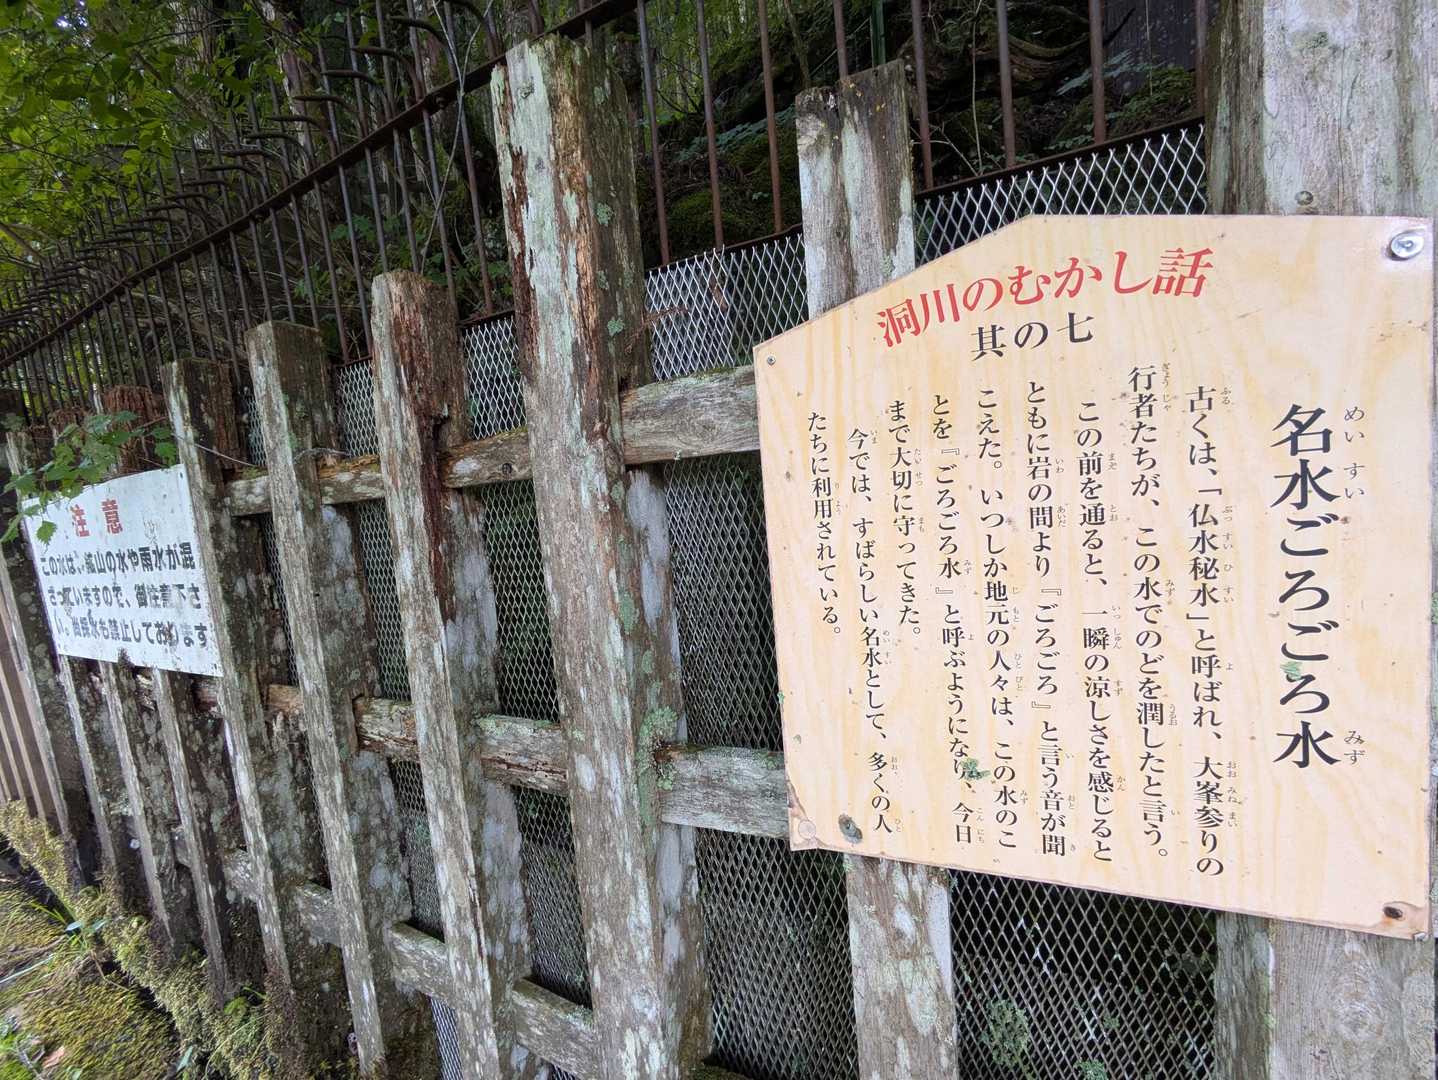 洞川のむかし話
其の七
名水ごろごろ水
めいすい
みず
古くは、「仏水秘水」と呼ばれ、大峯参りの
行者たちが、この水でのどを潤したと言う。
この前を通ると、一瞬の涼しさを感じると
ともに岩の間より『ごろごろ』と言う音が聞
こえた。いつしか地元の人々は、この水のこ
とを『ごろごろ水』と呼ぶようになり、今日
まで大切に守ってきた。
今では、すばらしい名水として、多くの人
たちに利用されている。
注意
この水は、鍾山の水や雨水が混
ざっていますので、御注意下さ
い。尚採水も禁止しております